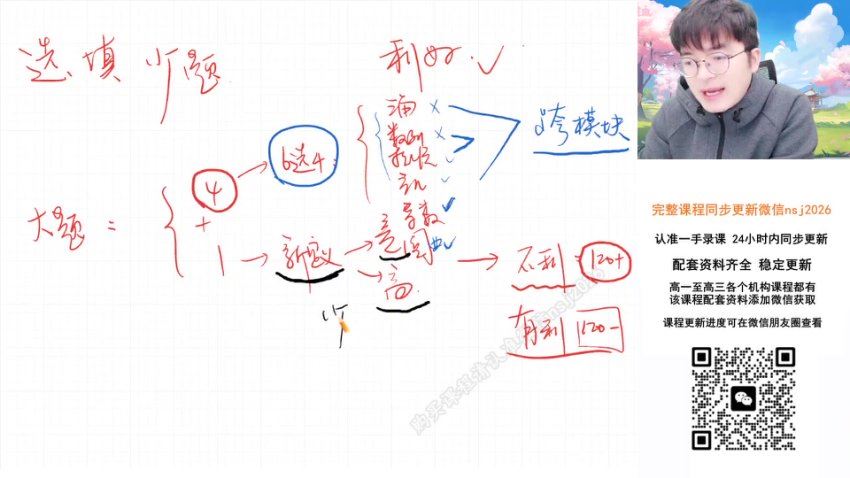 选填 少题
利好 ✓
三角 ×
数列 ×
概统 ✓
立几
跨模块
4 → 6选4
导数 ✓
大题 = 4 + 1
1 → 新定义 → 竞
圆曲 ✓
高
→ 不利 120+
有利 120-
少
购买课程请认准微信nsj2026
完整课程同步更新微信nsj2026
认准一手录课 24小时内同步更新
配套资料齐全 稳定更新
高一至高三各个机构课程都有
该课程配套资料添加微信获取
课程更新进度可在微信朋友圈查看